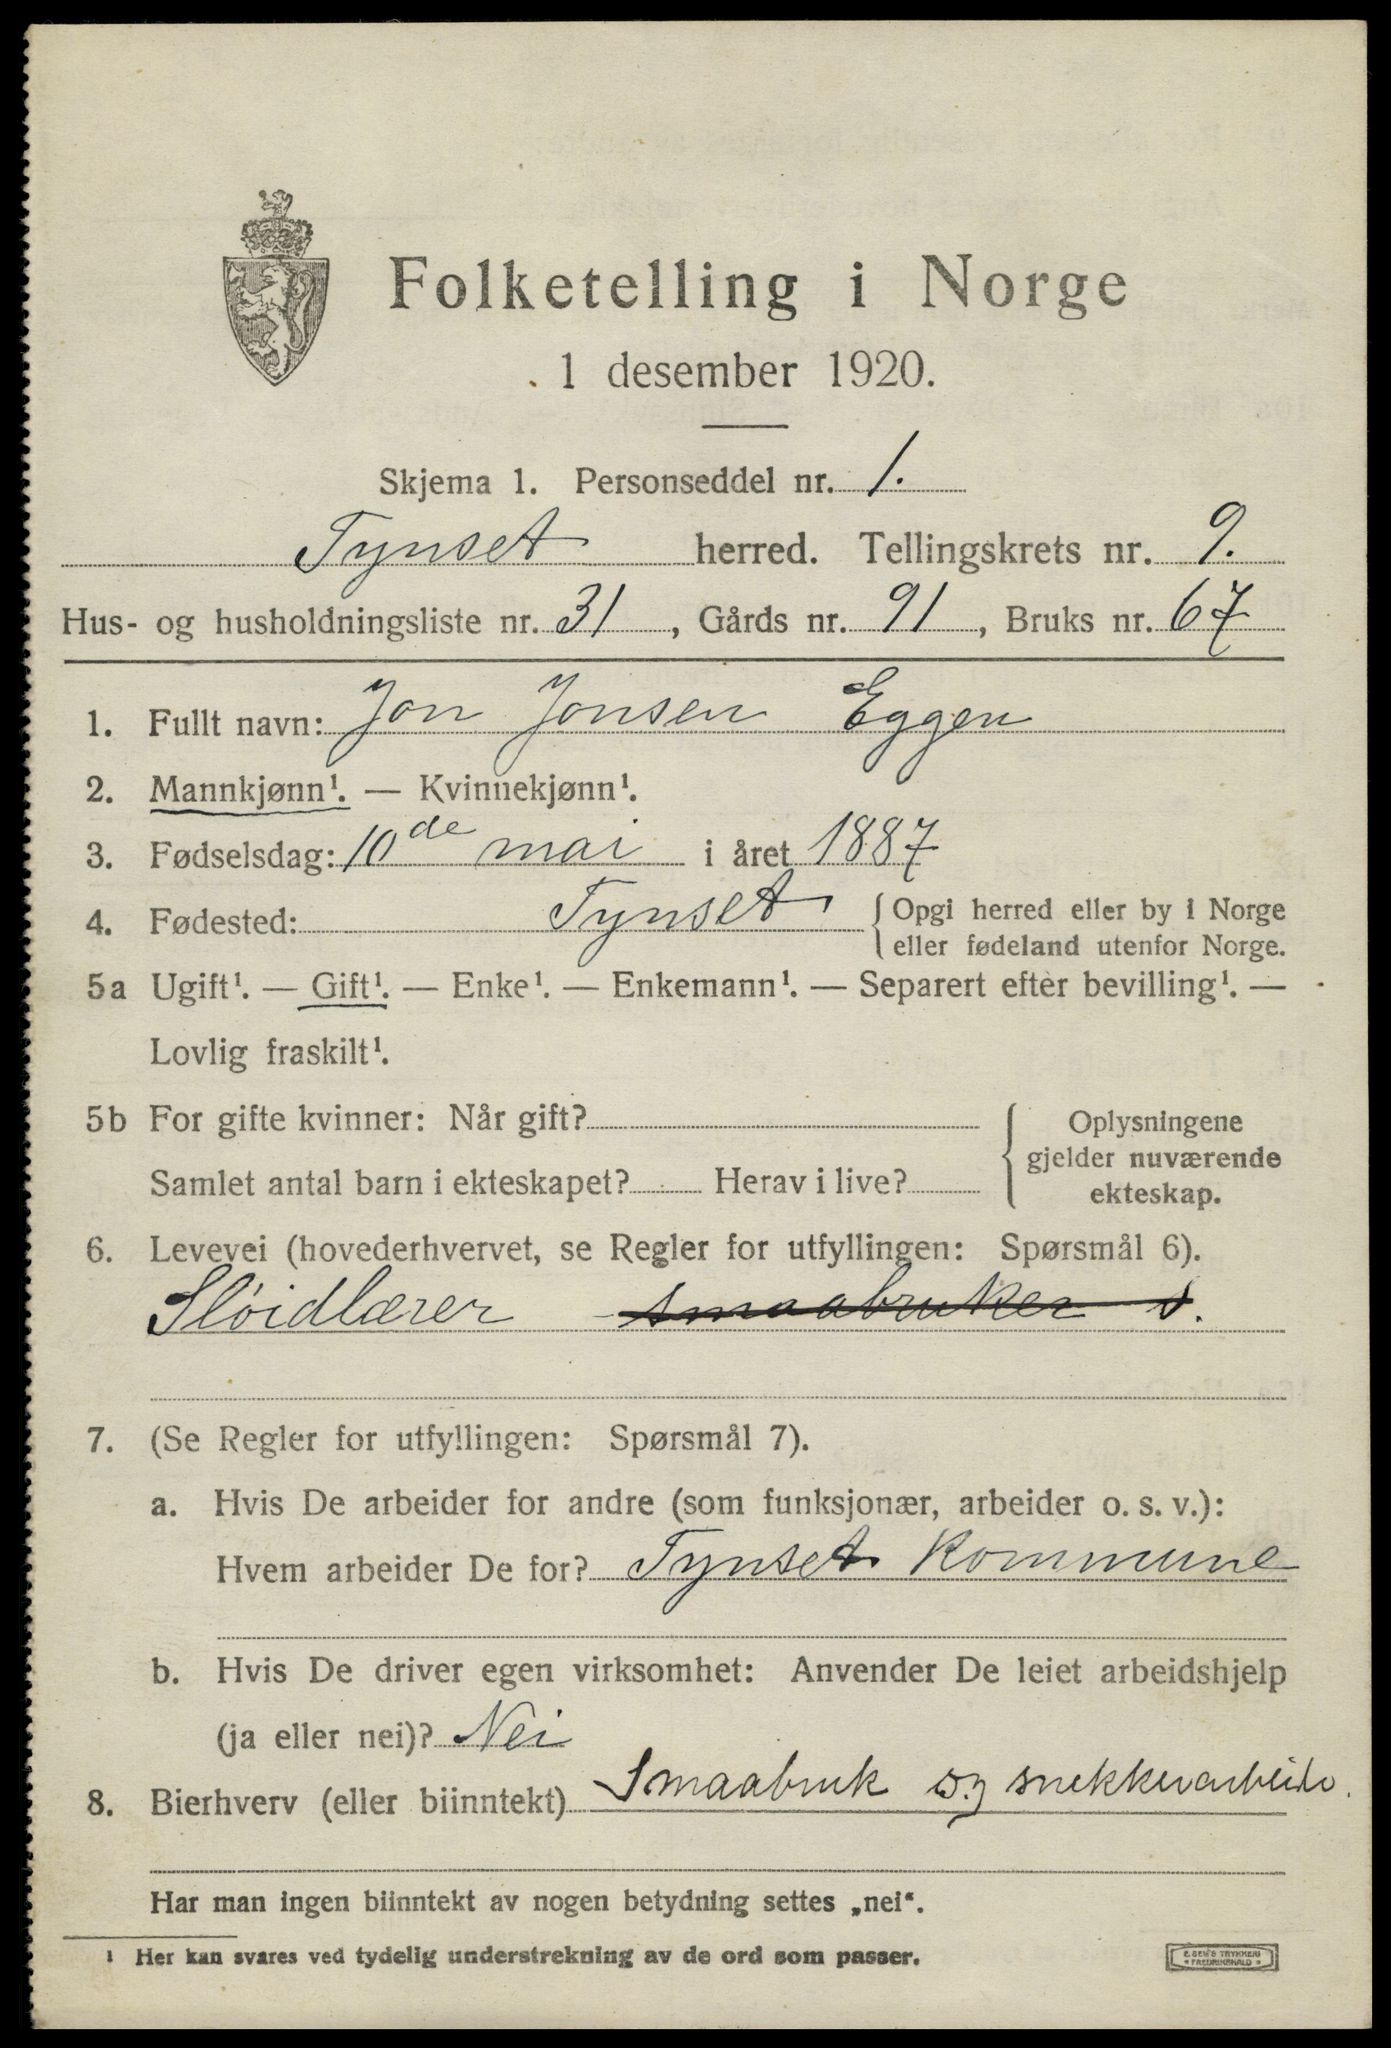 Folketelling i Norge
1 desember 1920.
Skjema 1. Personseddel nr. 1.
Tynset herred. Tellingskrets nr. 9.
Hus- og husholdningsliste nr. 31, Gårds nr. 91, Bruks nr. 67
1. Fullt navn: Jon Jonsen Eggen
2. Mannkjønn¹. — Kvinnekjønn¹.
3. Fødselsdag: 10de mai i året 1887
4. Fødested: Tynset { Opgi herred eller by i Norge
eller fødeland utenfor Norge.
5a Ugift¹. — Gift¹. — Enke¹. — Enkemann¹. — Separert efter bevilling¹. —
Lovlig fraskilt¹.
5b For gifte kvinner: Når gift? { Oplysningene
gjelder nuværende
Samlet antal barn i ekteskapet? Herav i live? ekteskap.
6. Levevei (hovederhvervet, se Regler for utfyllingen: Spørsmål 6).
Sløidlærer smaabruker s.
7. (Se Regler for utfyllingen: Spørsmål 7).
a. Hvis De arbeider for andre (som funksjonær, arbeider o. s. v.):
Hvem arbeider De for? Tynset Kommune
b. Hvis De driver egen virksomhet: Anvender De leiet arbeidshjelp
(ja eller nei)? Nei
8. Bierhverv (eller biinntekt) Smaabruk og snekkerarbeide.
Har man ingen biinntekt av nogen betydning settes „nei“.
¹ Her kan svares ved tydelig understrekning av de ord som passer.
E. SEM'S TRYKKERI
FREDRIKSHALD